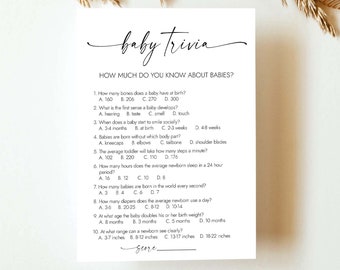 baby trivia
HOW MUCH DO YOU KNOW ABOUT BABIES?
1. How many bones does a baby have at birth?
A. 160 B. 206 C. 270 D. 300
2. What is the first sense a baby develops?
A. hearing B. taste C. smell D. touch
3. When does a baby start to smile socially?
A. 3-4 months B. at birth C. 2-3 weeks D. 4-8 weeks
4. Babies are born without which body part?
A. kneecaps B. elbows C. tailbone D. shoulder blades
5. The average toddler will take how many steps a minute?
A. 102 B. 220 C. 110 D. 176
6. How many hours does the average newborn sleep in a 24 hour
period?
A. 16 B. 12 C. 10 D. 8
7. How many babies are born in the world every second?
A. 3 B. 4 C. 6 D. 7
8. How many diapers does the average newborn use a day?
A. 3-6 B. 20-25 C. 8-12 D. 10-14
9. At what age the baby doubles his or her birth weight?
A. 8 months B. 3 months C. 5 months D. 10 months
10. At what range can a newborn see clearly?
A. 3-7 inches B. 8-12 inches C. 13-17 inches D. 18-22 inches
score